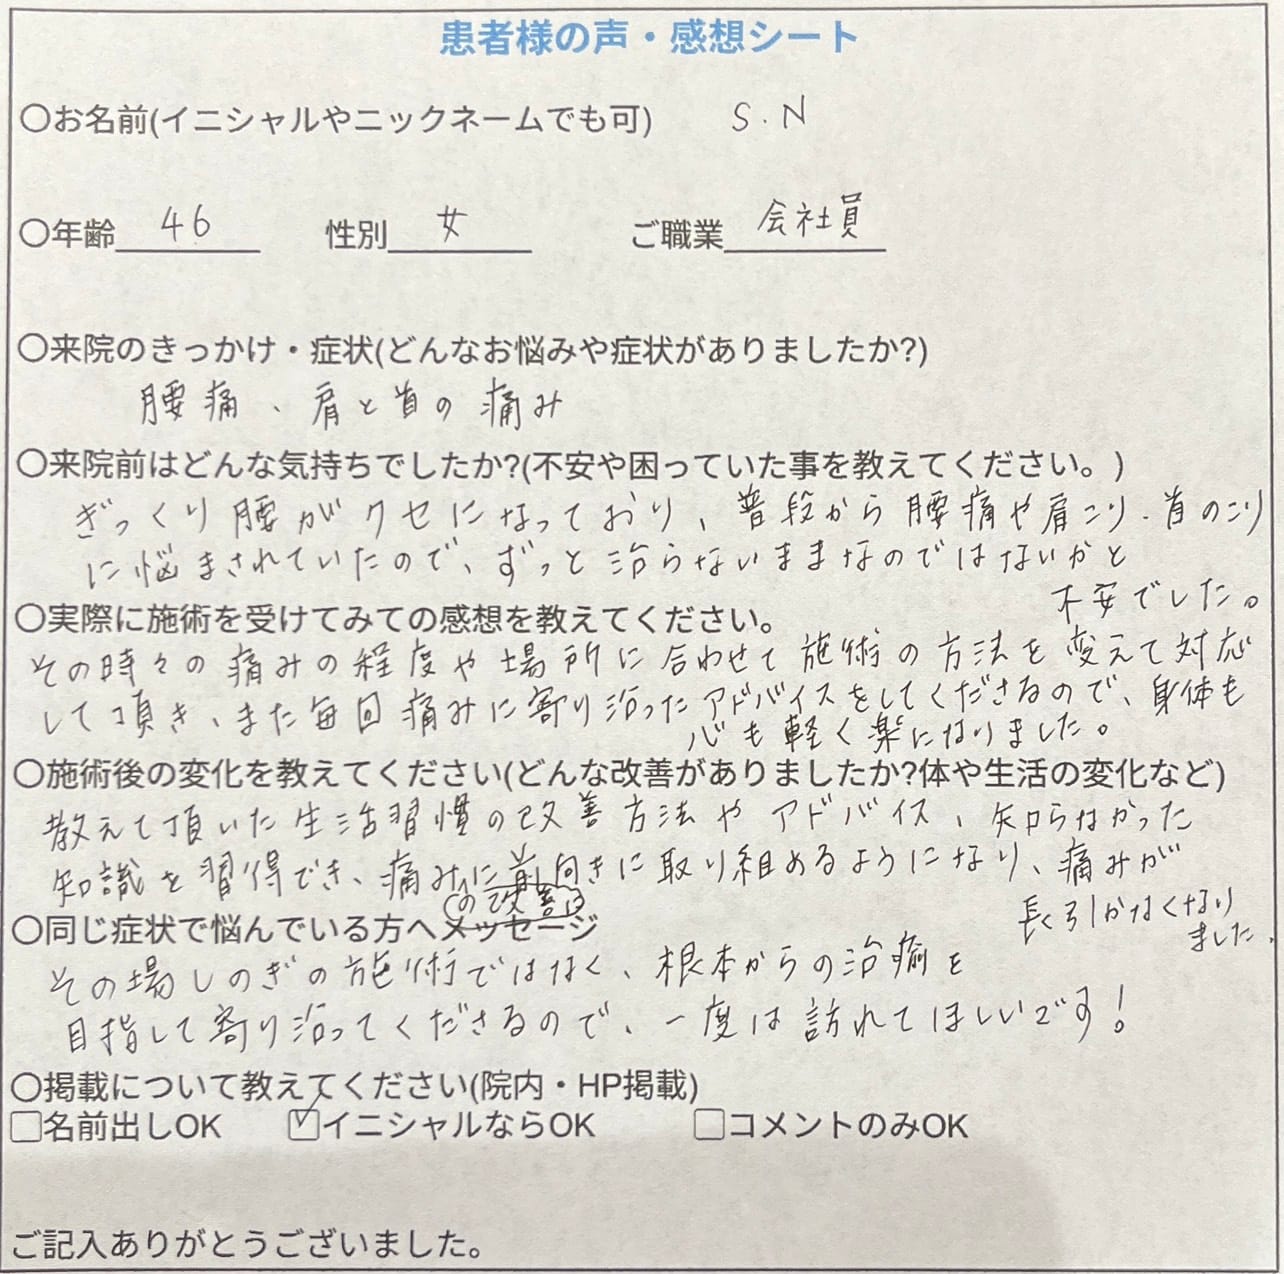 患者様の声・感想シート
〇お名前(イニシャルやニックネームでも可) S.N
〇年齢 46 性別 女 ご職業 会社員
〇来院のきっかけ・症状(どんなお悩みや症状がありましたか?)
腰痛、肩と首の痛み
〇来院前はどんな気持ちでしたか?(不安や困っていた事を教えてください。)
ぎっくり腰がクセになっており、普段から腰痛や肩こり・首のこり
に悩まされていたので、ずっと治らないままなのではないかと
不安でした。
〇実際に施術を受けてみての感想を教えてください。
その時々の痛みの程度や場所に合わせて施術の方法を変えて対応
して頂き、また毎回痛みに寄り沿ったアドバイスをしてくださるので、身体も
心も軽く楽になりました。
〇施術後の変化を教えてください(どんな改善がありましたか?体や生活の変化など)
教えて頂いた生活習慣の改善方法やアドバイス、知らなかった
知識を習得でき、痛みに前向きに取り組めるようになり、痛みが
の改善に
長く引かなくなり
ました。
〇同じ症状で悩んでいる方へメッセージ
その場しのぎの施術ではなく、根本からの治癒を
目指して寄り沿ってくださるので、一度は訪れてほしいです!
〇掲載について教えてください(院内・HP掲載)
□名前出しOK ☑イニシャルならOK □コメントのみOK
ご記入ありがとうございました。